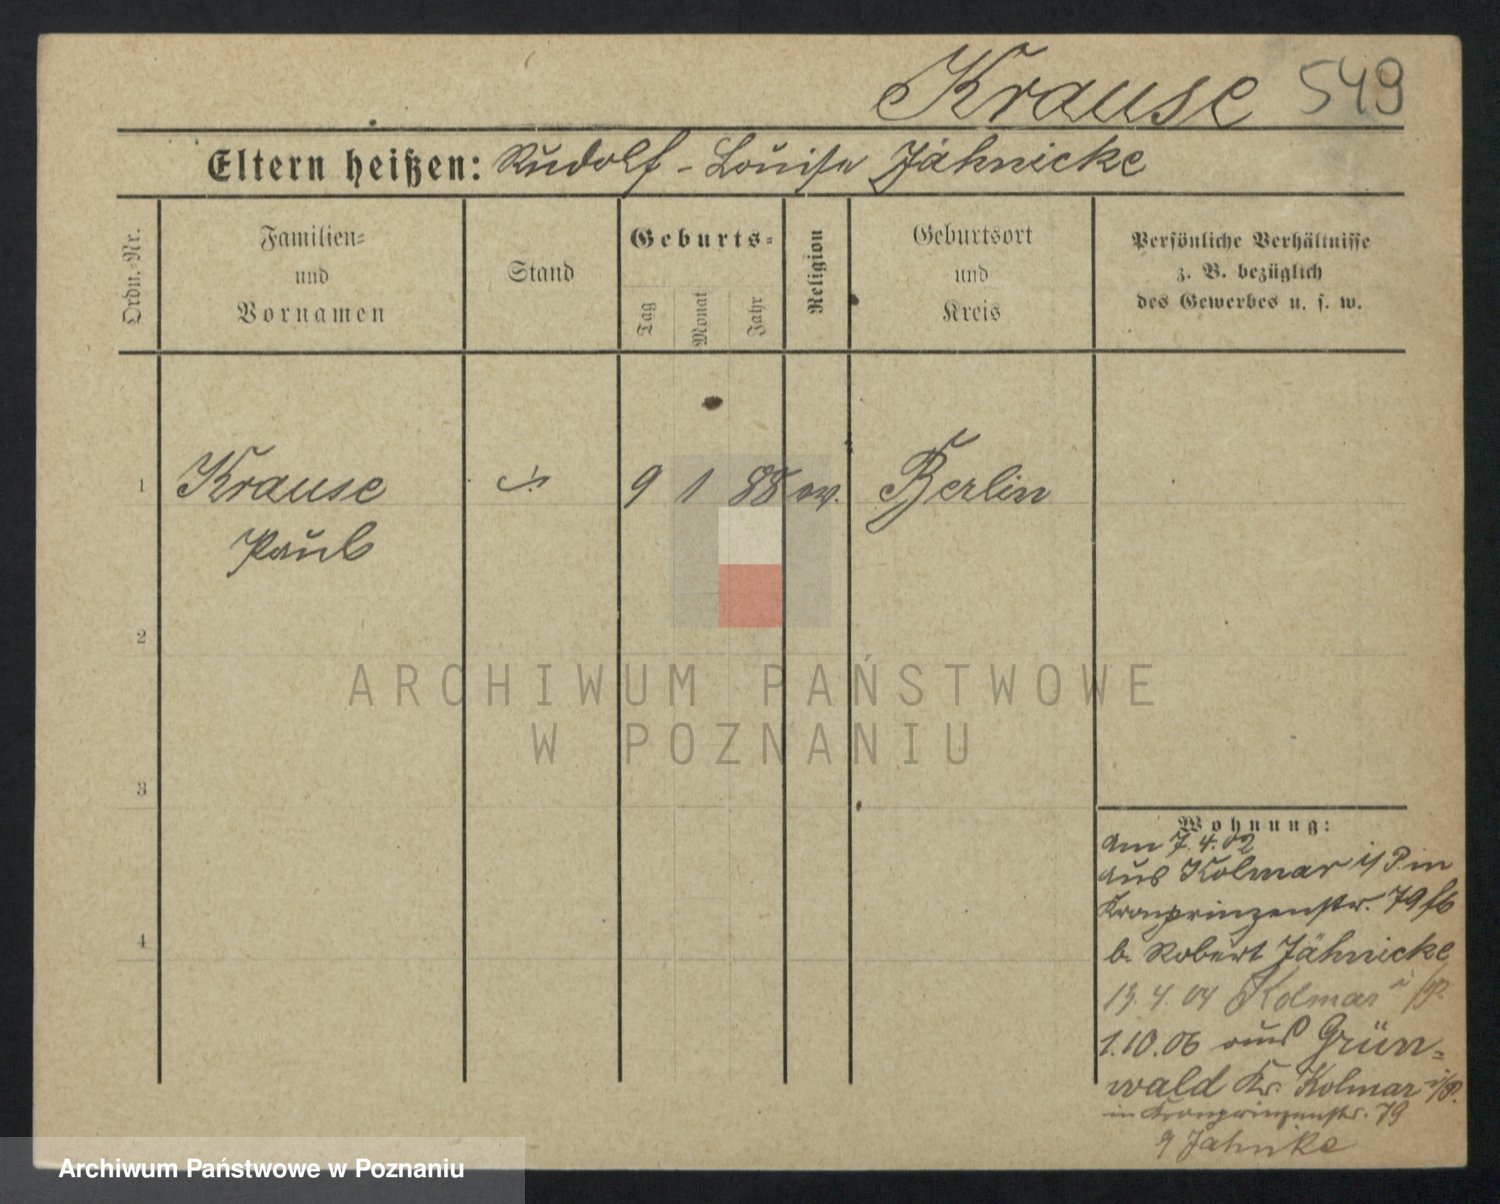 Krause 549
Eltern heißen: Rudolf - Louise Jähnicke
Ordn.-Nr.
Familien-
und
Vornamen
Stand
Geburts-
Tag
Monat
Jahr
Religion
Geburtsort
und
Kreis
Persönliche Verhältnisse
z. B. bezüglich
des Gewerbes u. s. w.
1 Krause 9 1 88 ev. Berlin
Paul
2
ARCHIWUM PAŃSTWOWE
W POZNANIU
3
Wohnung:
am 7.4.02
aus Kolmar i/P. in
Kronprinzenstr. 79
b. Robert Jähnicke
4
13.4.04 Kolmar i/P.
1.10.06 aus Grün-
wald Kr. Kolmar i/P.
in Kronprinzenstr. 79
Jähnike
Archiwum Państwowe w Poznaniu